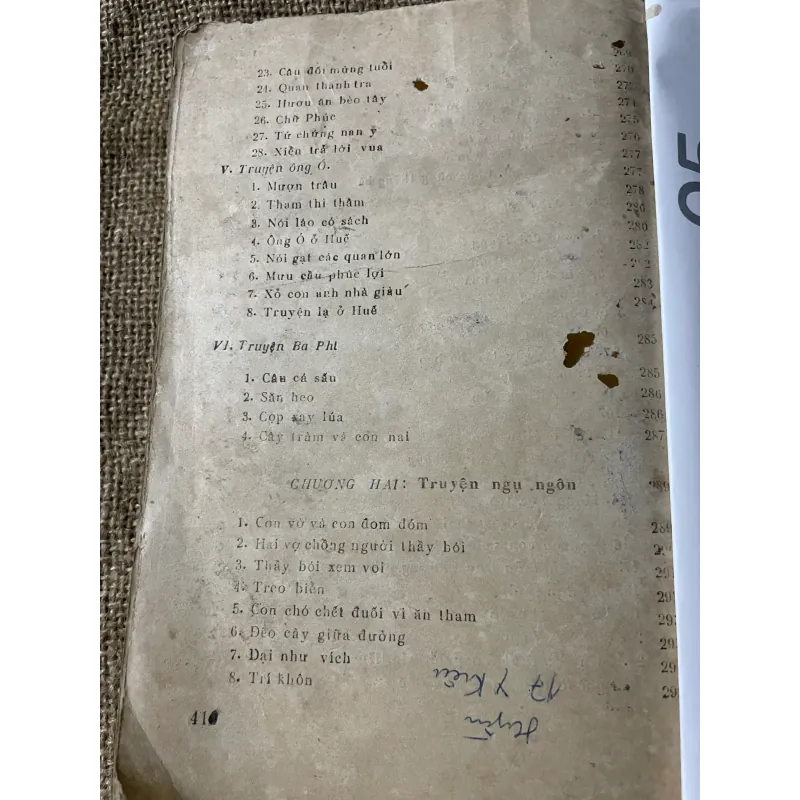 269
23. Câu đối mừng tuổi 270
24. Quan thanh tra 27
25. Hươu ăn bèo tây 274
26. Chữ Phúc 275
27. Tứ chứng nan y 276
28. Xiển trả lời vua 277
V. Truyện ông Ó. 277
1. Mượn trâu 278
2. Tham thì thâm 280
3. Nói láo có sách 280
4. Ông Ó ở Huế 282
5. Nói gạt các quan lớn
6. Mưu cầu phúc lợi 283
7. Xỏ con anh nhà giàu 284
8. Truyện lạ ở Huế
VI. Truyện Ba Phi 285
1. Câu cá sấu 285
2. Săn heo 286
3. Cọp xay lúa 286
4. Cây tràm và con nai 287
CHƯƠNG HAI: Truyện ngụ ngôn 289
1. Con vờ và con đom đóm 289
2. Hai vợ chồng người thầy bói 29
3. Thầy bói xem voi 29
4. Treo biển 29
5. Con chó chết đuối vì ăn tham 29
6. Đẽo cày giữa đường 29
7. Dại như vích 29
8. Trí khôn 29
17 Y Kiều
Huyền
410